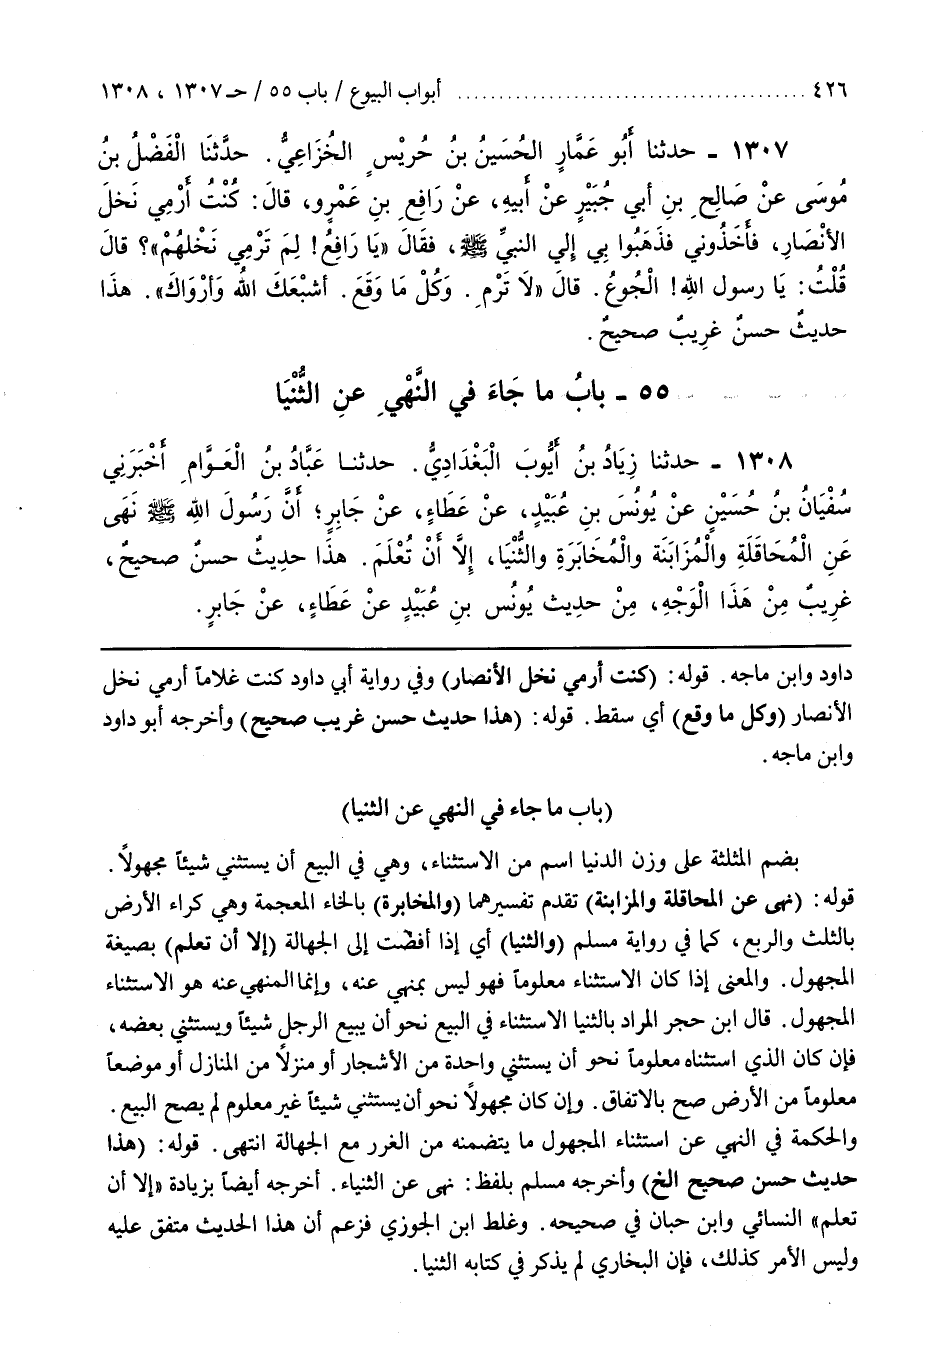 ٤٢٦ ........................................ أبواب البيوع / باب ٥٥ / حـ ١٣٠٧ ، ١٣٠٨
١٣٠٧ ـ حدثنا أَبُو عَمَّارٍ الحُسَيْنُ بنُ حُريْسٍ الخُزَاعِيُّ. حدَّثَنَا الْفَضْلُ بنُ
مُوسَى عنْ صَالِحِ بنِ أبي جُبَيْرٍ عنْ أَبيهِ، عنْ رَافِعِ بنِ عَمْرٍو، قالَ: كُنْتُ أَرْمِي نَخلَ
الأنْصَارِ، فأَخَذُوني فذَهَبُوا بِي إلي النبيِّ ﷺ، فقَالَ «يَا رَافِعُ! لِمَ تَرْمِي نَخْلهُمْ»؟ قالَ
قُلْتُ: يَا رسول اللهِ! الْجُوعُ. قالَ «لاَ تَرْمِ. وَكُلْ مَا وَقَعَ. أشبْعَكَ اللهُ وَأرْوَاكَ». هذَا
حديثٌ حسنٌ غرِيبٌ صحيحٌ.
٥٥ ـ بابُ ما جَاءَ في النَّهْيِ عنِ الثُّنْيَا
١٣٠٨ ـ حدثنا زِيَادُ بنُ أَيُّوبَ الْبَغْدَادِيُّ. حدثنا عَبَّادُ بنُ الْعَوَّامِ أَخْبَرَنِي
سُفْيَانُ بنُ حُسَيْنٍ عنْ يُونُسَ بنِ عُبَيْدٍ، عنْ عَطَاءٍ، عنْ جَابِرٍ؛ أنَّ رَسُولَ اللهِ ﷺ نَهَى
عَنِ الْمُحَاقَلَةِ والْمُزَابَنَة والْمُخَابَرَةِ والثُّنْيَا، إلَّا أَنْ تُعْلَمَ. هذَا حديثٌ حسنٌ صحيحٌ،
غرِيبٌ مِنْ هَذَا الْوَجْهِ، مِنْ حديث يُونُس بنِ عُبَيْدٍ عنْ عَطَاءٍ، عنْ جَابرٍ.
داود وابن ماجه. قوله: (كنت أرمي نخل الأنصار) وفي رواية أبي داود كنت غلاماً أرمي نخل
الأنصار (وكل ما وقع) أي سقط. قوله: (هذا حديث حسن غريب صحيح) وأخرجه أبو داود
وابن ماجه.
(باب ما جاء في النهي عن الثنيا)
بضم المثلثة على وزن الدنيا اسم من الاستثناء، وهي في البيع أن يستثني شيئاً مجهولاً.
قوله: (نهى عن المحاقلة والمزابنة) تقدم تفسيرهما (والمخابرة) بالخاء المعجمة وهي كراء الأرض
بالثلث والربع، كما في رواية مسلم (والثنيا) أي إذا أفضت إلى الجهالة (إلا أن تعلم) بصيغة
المجهول. والمعنى إذا كان الاستثناء معلوماً فهو ليس بمنهي عنه، وإنما المنهي عنه هو الاستثناء
المجهول. قال ابن حجر المراد بالثنيا الاستثناء في البيع نحو أن يبيع الرجل شيئاً ويستثني بعضه،
فإن كان الذي استثناه معلوماً نحو أن يستثني واحدة من الأشجار أو منزلاً من المنازل أو موضعاً
معلوماً من الأرض صح بالاتفاق. وإن كان مجهولاً نحو أن يستثني شيئاً غير معلوم لم يصح البيع.
والحكمة في النهي عن استثناء المجهول ما يتضمنه من الغرر مع الجهالة انتهى. قوله: (هذا
حديث حسن صحيح الخ) وأخرجه مسلم بلفظ: نهى عن الثنياء. أخرجه أيضاً بزيادة «إلا أن
تعلم» النسائي وابن حبان في صحيحه. وغلط ابن الجوزي فزعم أن هذا الحديث متفق عليه
وليس الأمر كذلك، فإن البخاري لم يذكر في كتابه الثنيا.